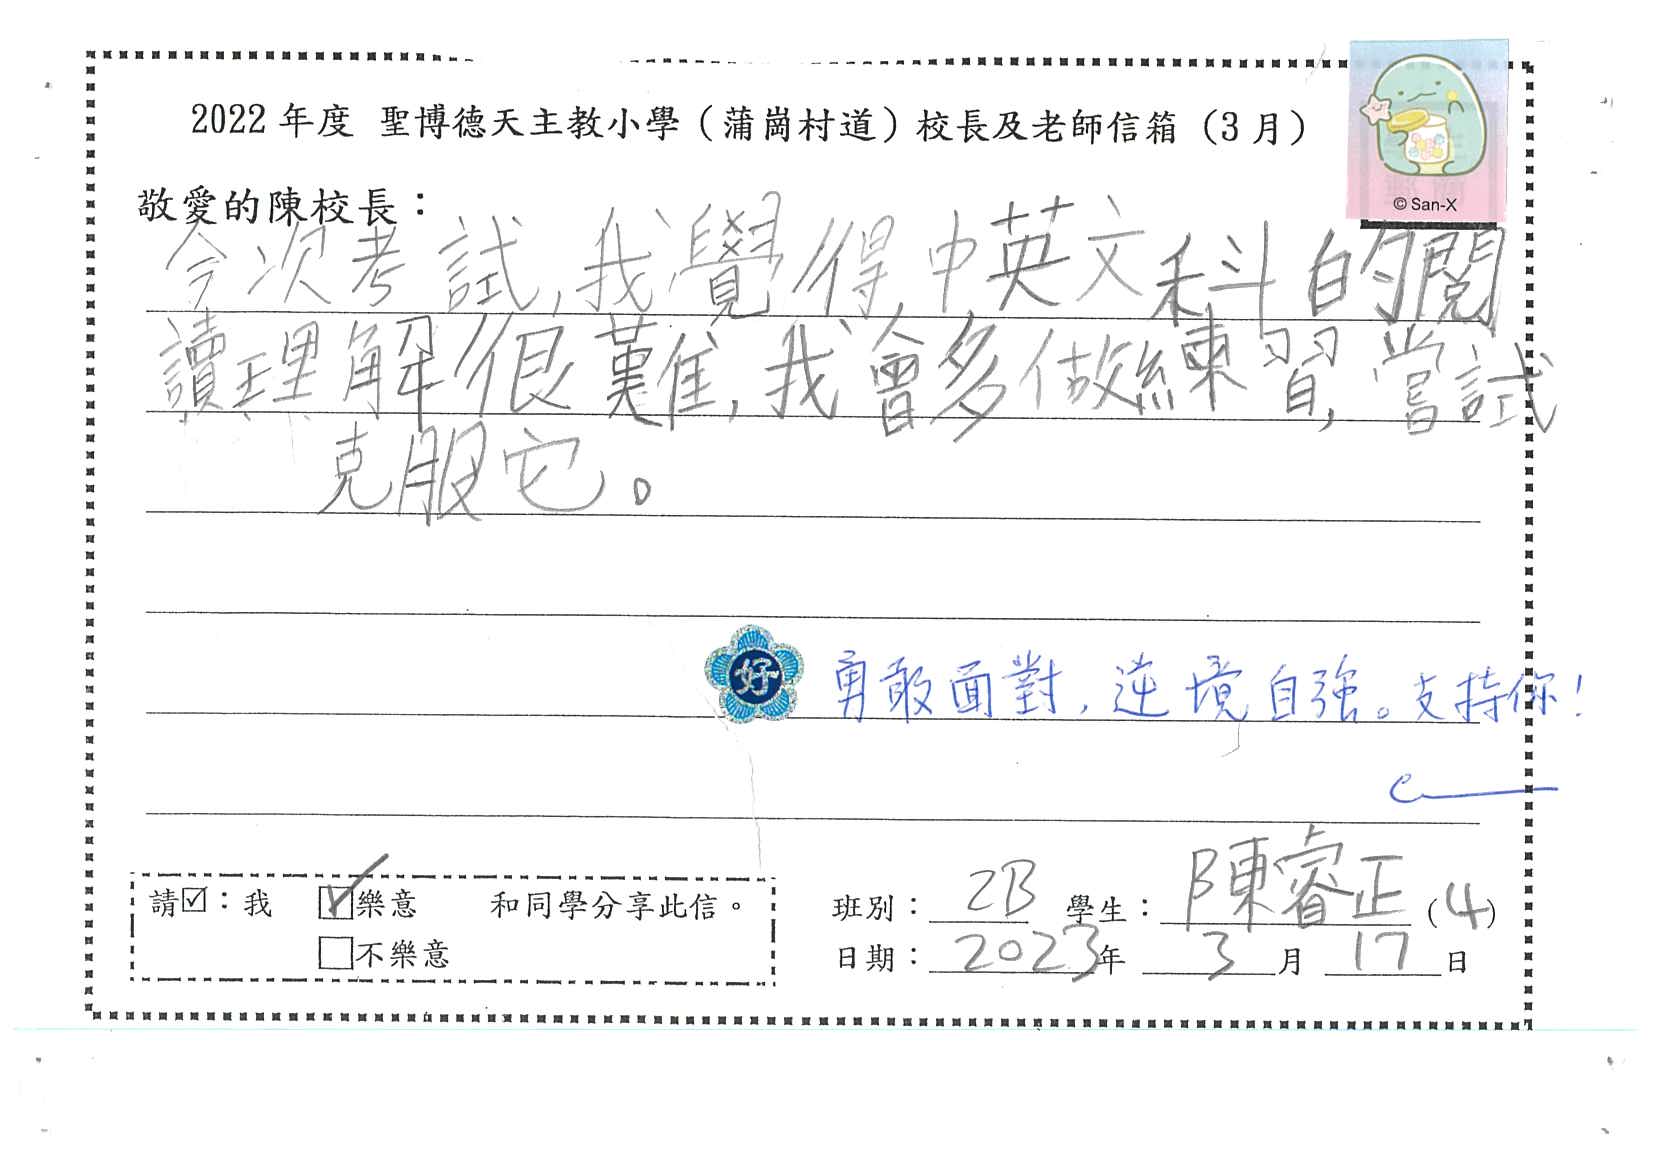 2022 年度 聖博德天主教小學（蒲崗村道）校長及老師信箱（3 月）
© San-X
敬愛的陳校長：
今次考試,我覺得中英文科的閱
讀理解很難,我會多做練習,嘗試
克服它。
好
勇敢面對,逆境自強。支持你！
請☑：我 ☑樂意 和同學分享此信。
□不樂意
班別：2B 學生：陳睿正（4）
日期：2023年 3 月 17 日